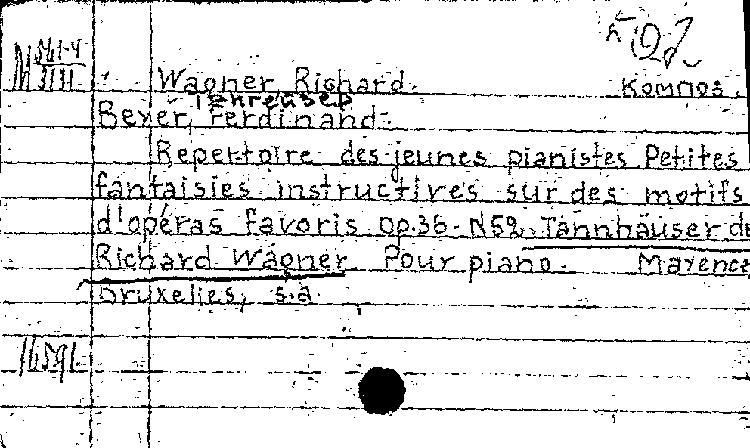 М 561-4
3131
Wagner, Richard.
Композ.
Tannhäuser
Beyer, Ferdinand.
Repertoire des jeunes pianistes Petites
fantaisies instructives sur des motifs
d'opéras favoris op.36. N52. Tannhäuser de
Richard Wagner Pour piano. Mayence
Bruxelles, s.a.
16591